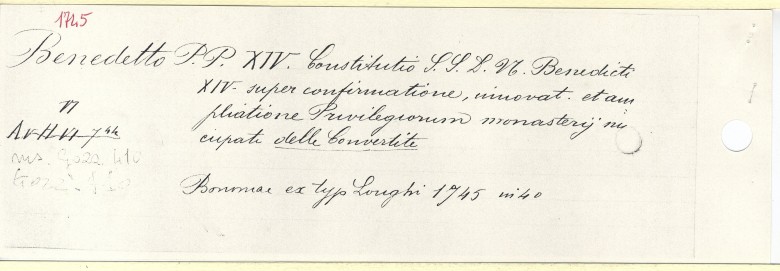 1745
Benedetto P.P. XIV. Constitutio S. S. D. N. Benedicti
XIV. super confirmatione, innovat. et am
pliatione Privilegiorum monasterij nu
cupati delle Convertite
VI
A v H VI 744
ms. Gozz. 410
Bononiae ex typ Longhi 1745 in 4o